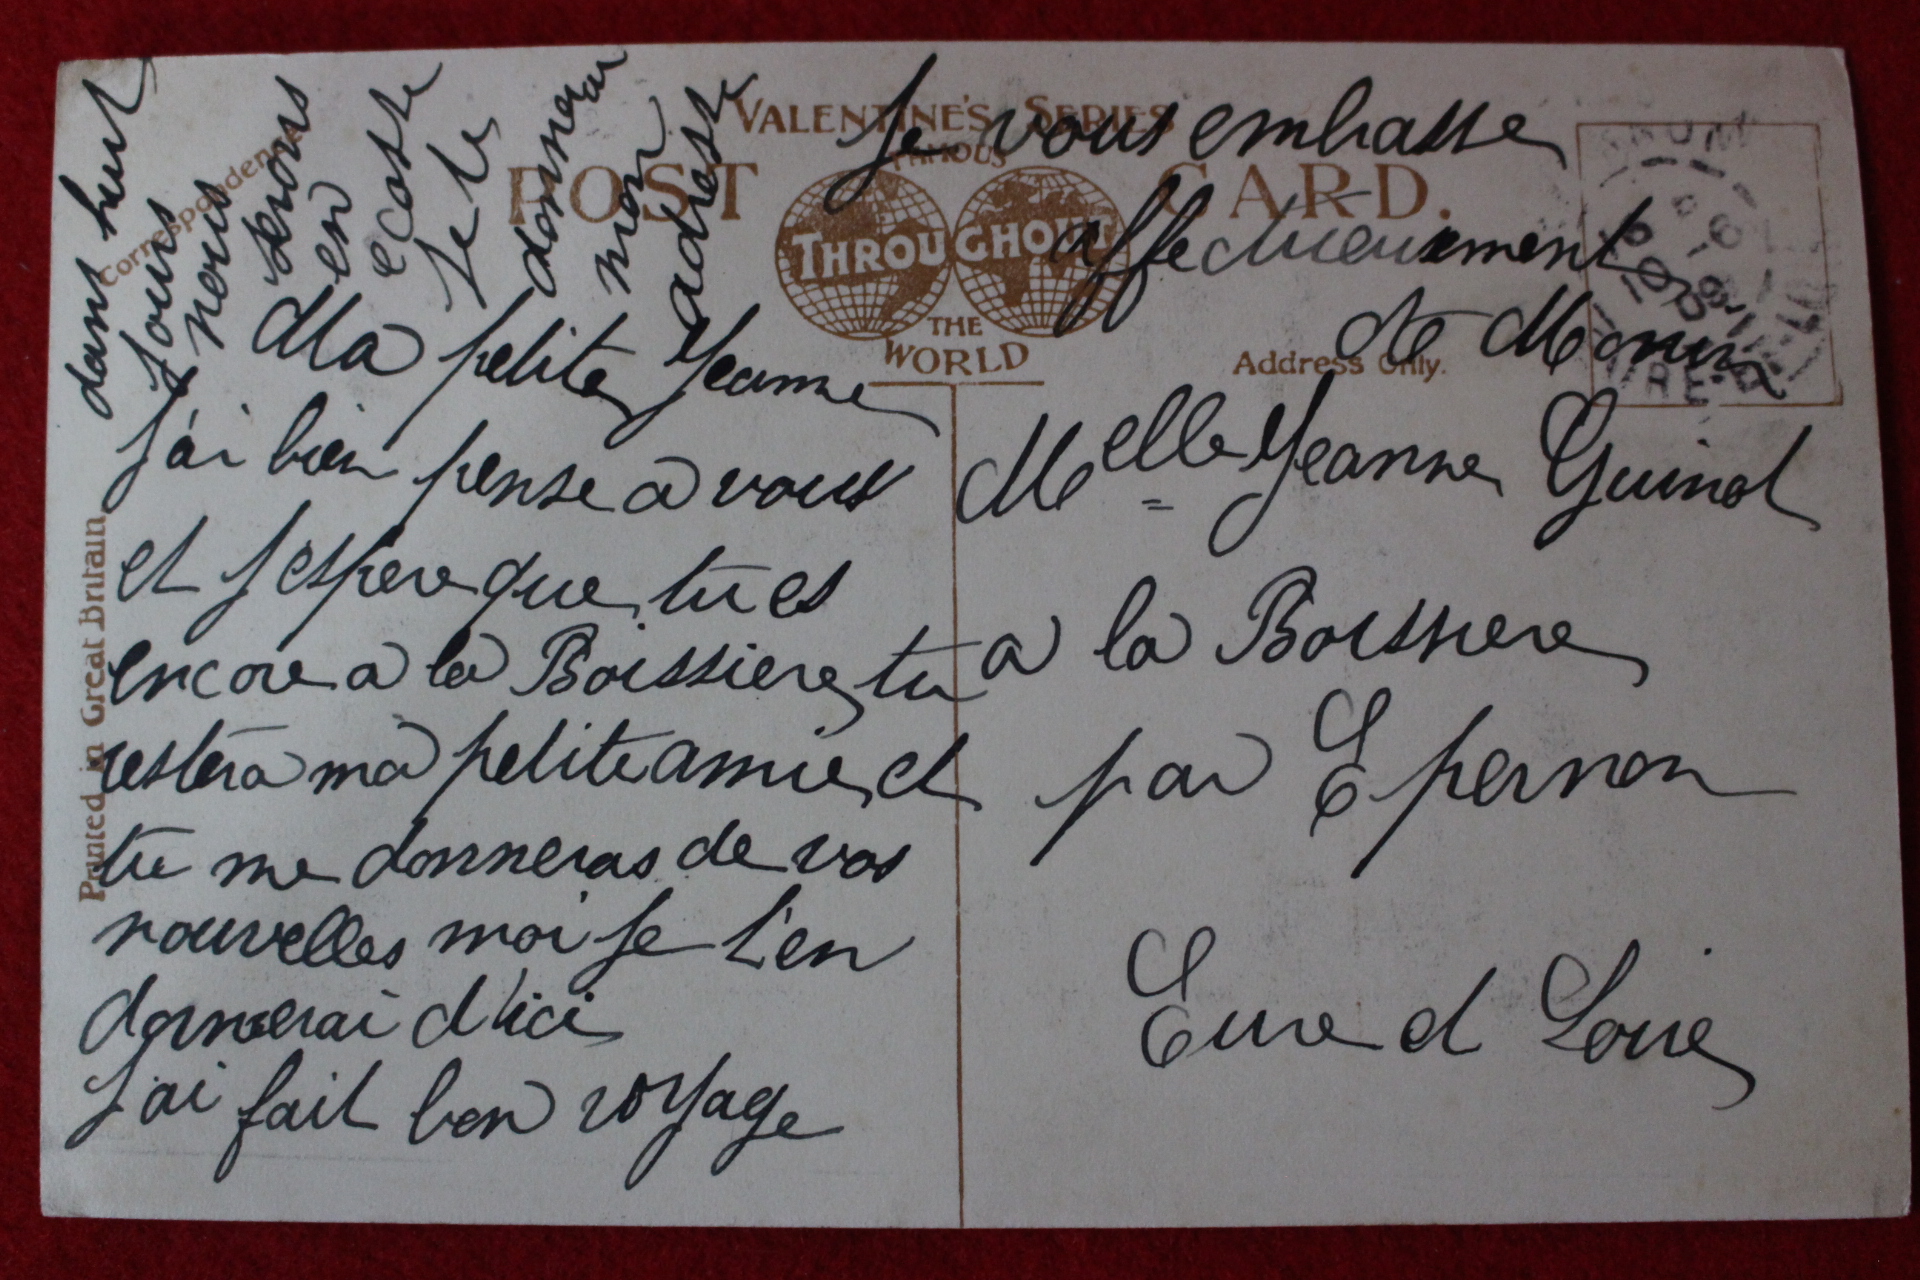 VALENTINE'S SERIES
FAMOUS
POST CARD.
THROUGHOUT
THE
WORLD
Correspondence
Address Only.
Printed in Great Britain
Ma petite Jeanne
J'ai bien pense a vous
et j'espere que tu es
encore a la Boissiere tu
restera ma petite amie et
tu me donneras de vos
nouvelles moi je t'en
donnerai d'ici
J'ai fait bon voyage
dans huit
jours
nous
serons
en
ecosse
je te
donnerai
mon
adresse
Je vous embrasse
affectueusement
Melle Jeanne Guinot
a la Boissiere
par Epernon
Eure et Loire